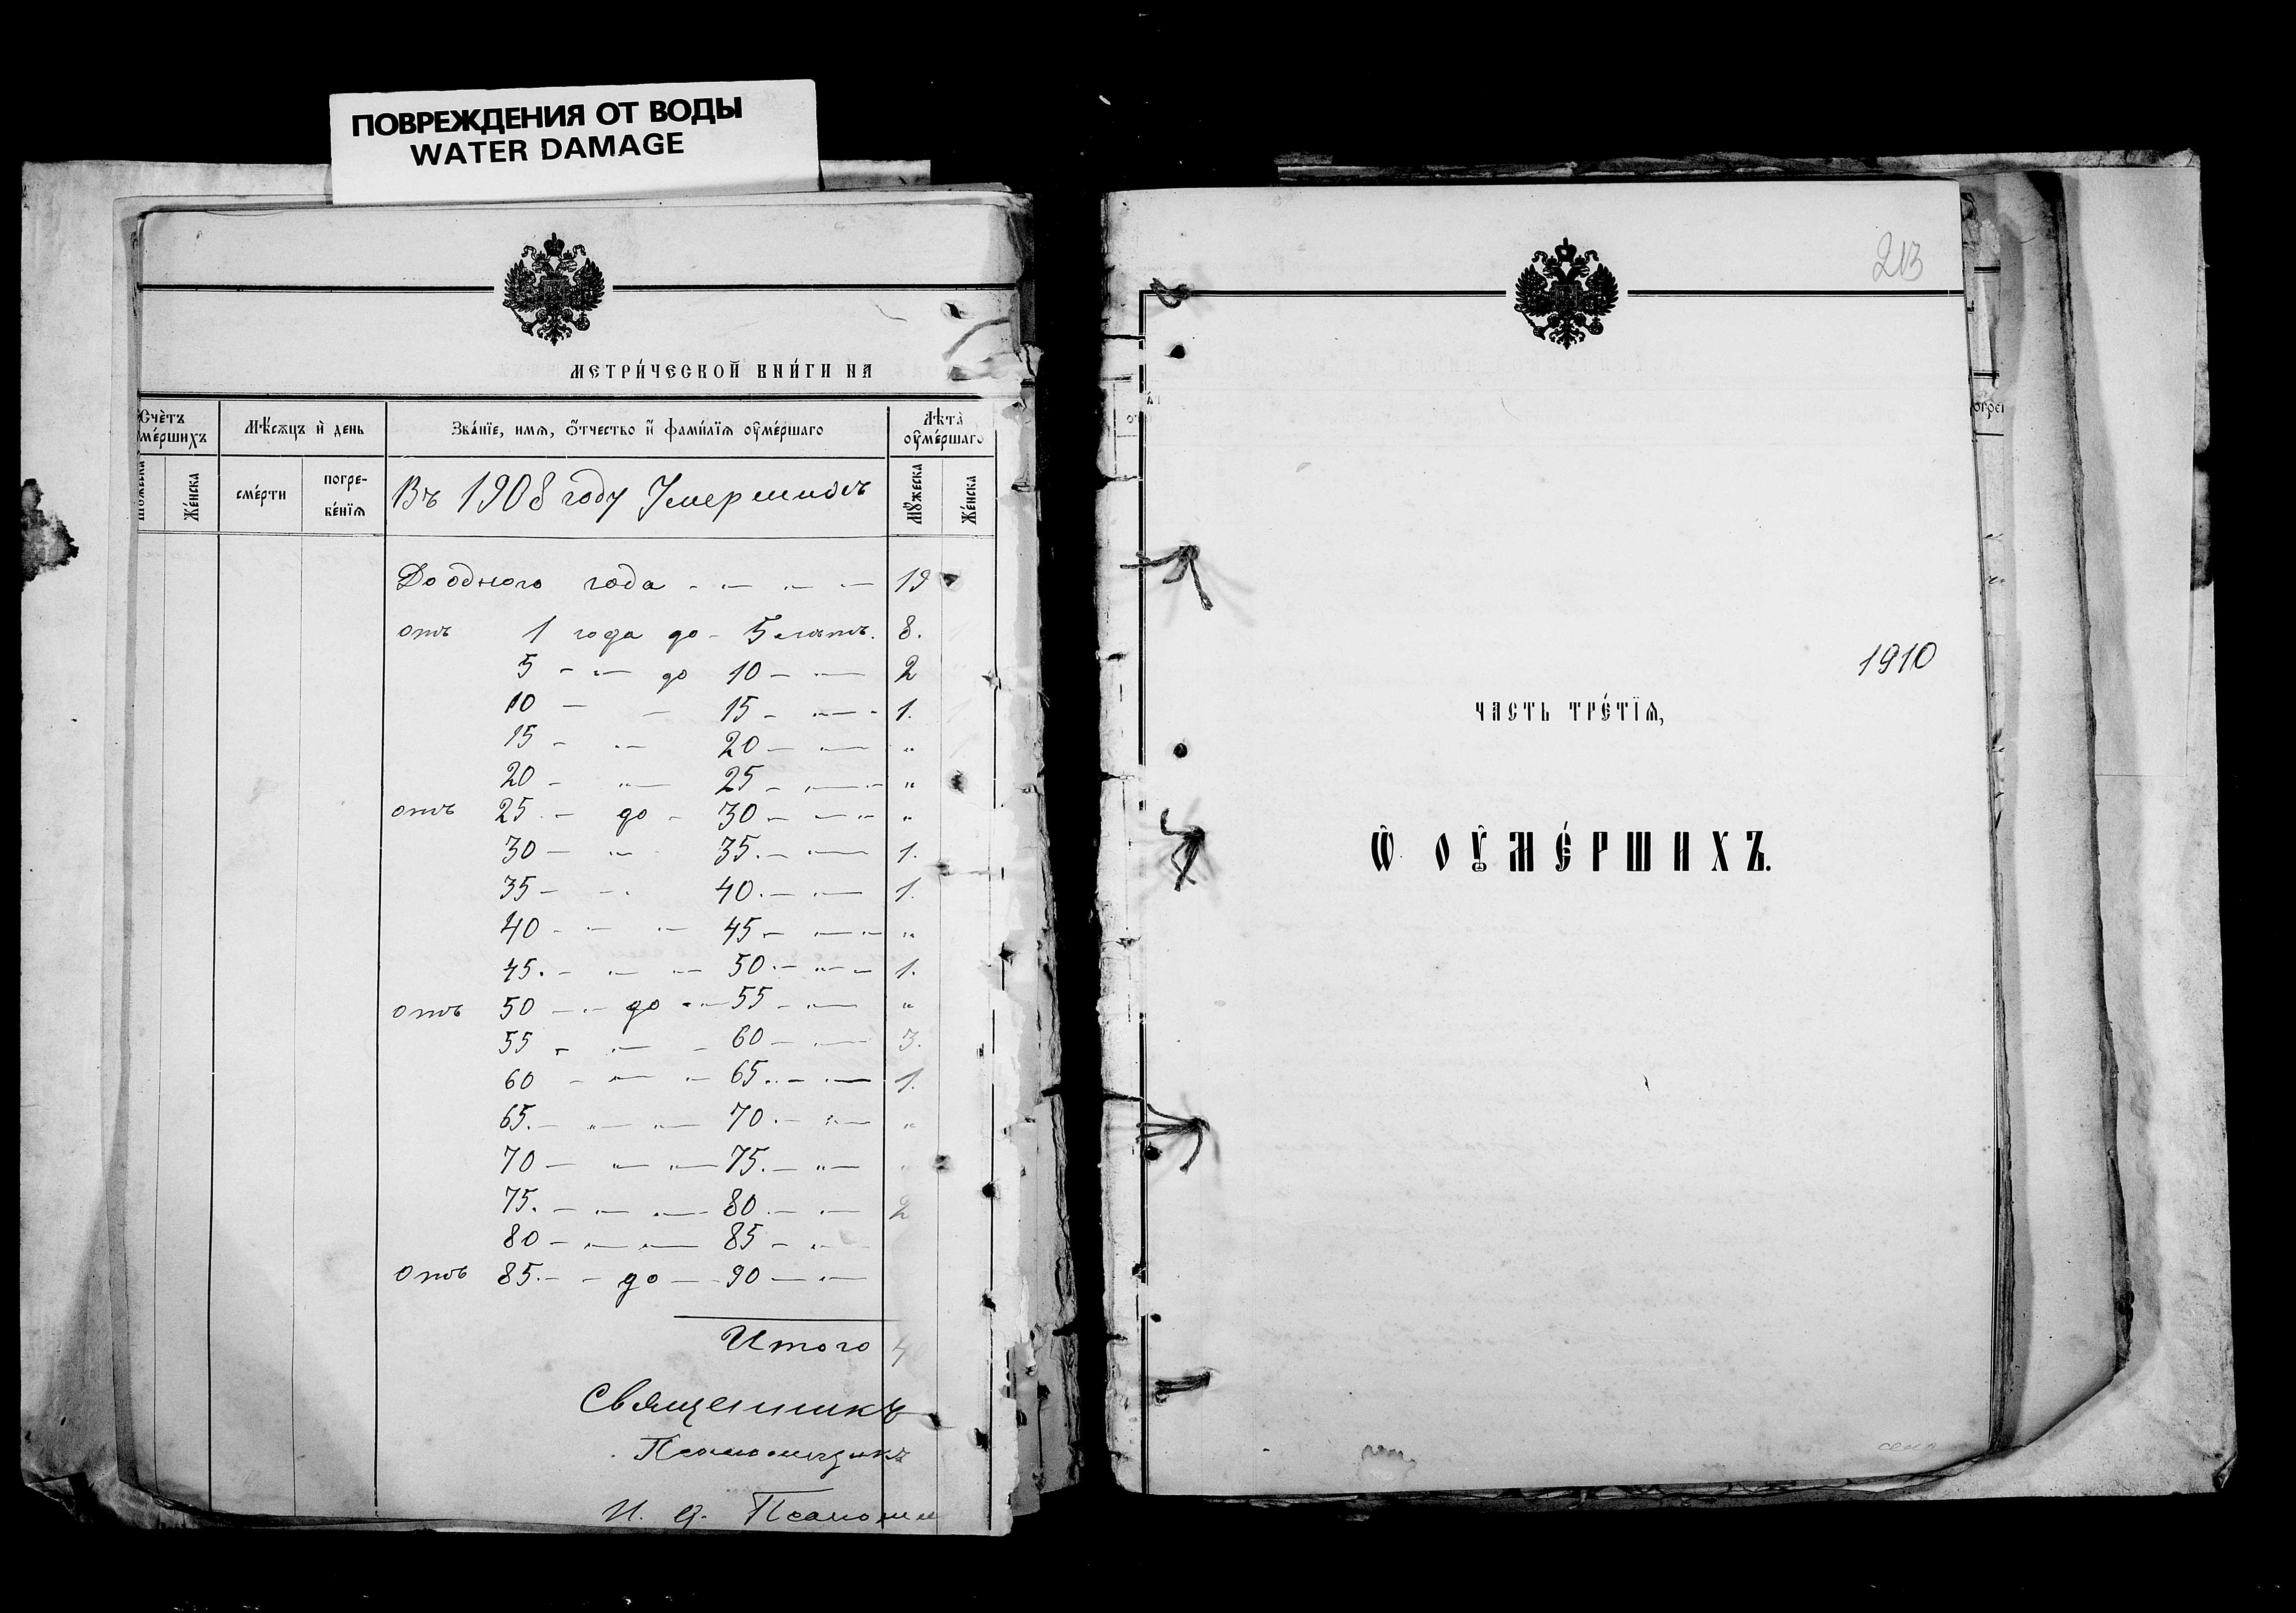 ПОВРЕЖДЕНИЯ ОТ ВОДЫ
WATER DAMAGE
МЕТРИ́ЧЕСКОЙ КНИ́ГИ НА
Счѐтъ
ме́ршихъ
Мѣ́сѧцъ и҆ день
Зва́нїе, имѧ, ѻ҆́тчество и҆ фами́лїѧ оу҆ме́ршагѡ
Лѣта̀
оу҆ме́ршагѡ
Же́нска
сме́рти
погре-
бе́нїѧ
Въ 1908 году Умершихъ
Мꙋ́жеска
Же́нска
До одного года - " - " - " - 19
отъ 1 года до - 5 лѣтъ. 8.
5 - " - до 10 - " - 2
10 - - 15 - " - 1.
15 - " - 20 - " - "
20 - " - 25 - " - "
отъ 25 - до - 30 - " - "
30 - " - 35 - " - 1.
35 - " - 40 - " - 1.
40 - " - 45 - " - "
45. - " - 50 - " - 1.
отъ 50 - " до " - 55 - " - "
55 - " - 60 - " - 3.
60 - " - 65 - " - 1.
65. - " - 70 - " - "
70 - " - 75. - " -
75. - " - 80 - " - 2
80 - " - 85 - " -
отъ 85. - - до - 90 - " -
Итого 4
Священникъ
Псаломщикъ
И. д. Псаломщ
213
1910
ЧАСТЬ ТРЕ́ТЇѦ,
Ѡ҆ ОУ҆МЕ́РШИХЪ.